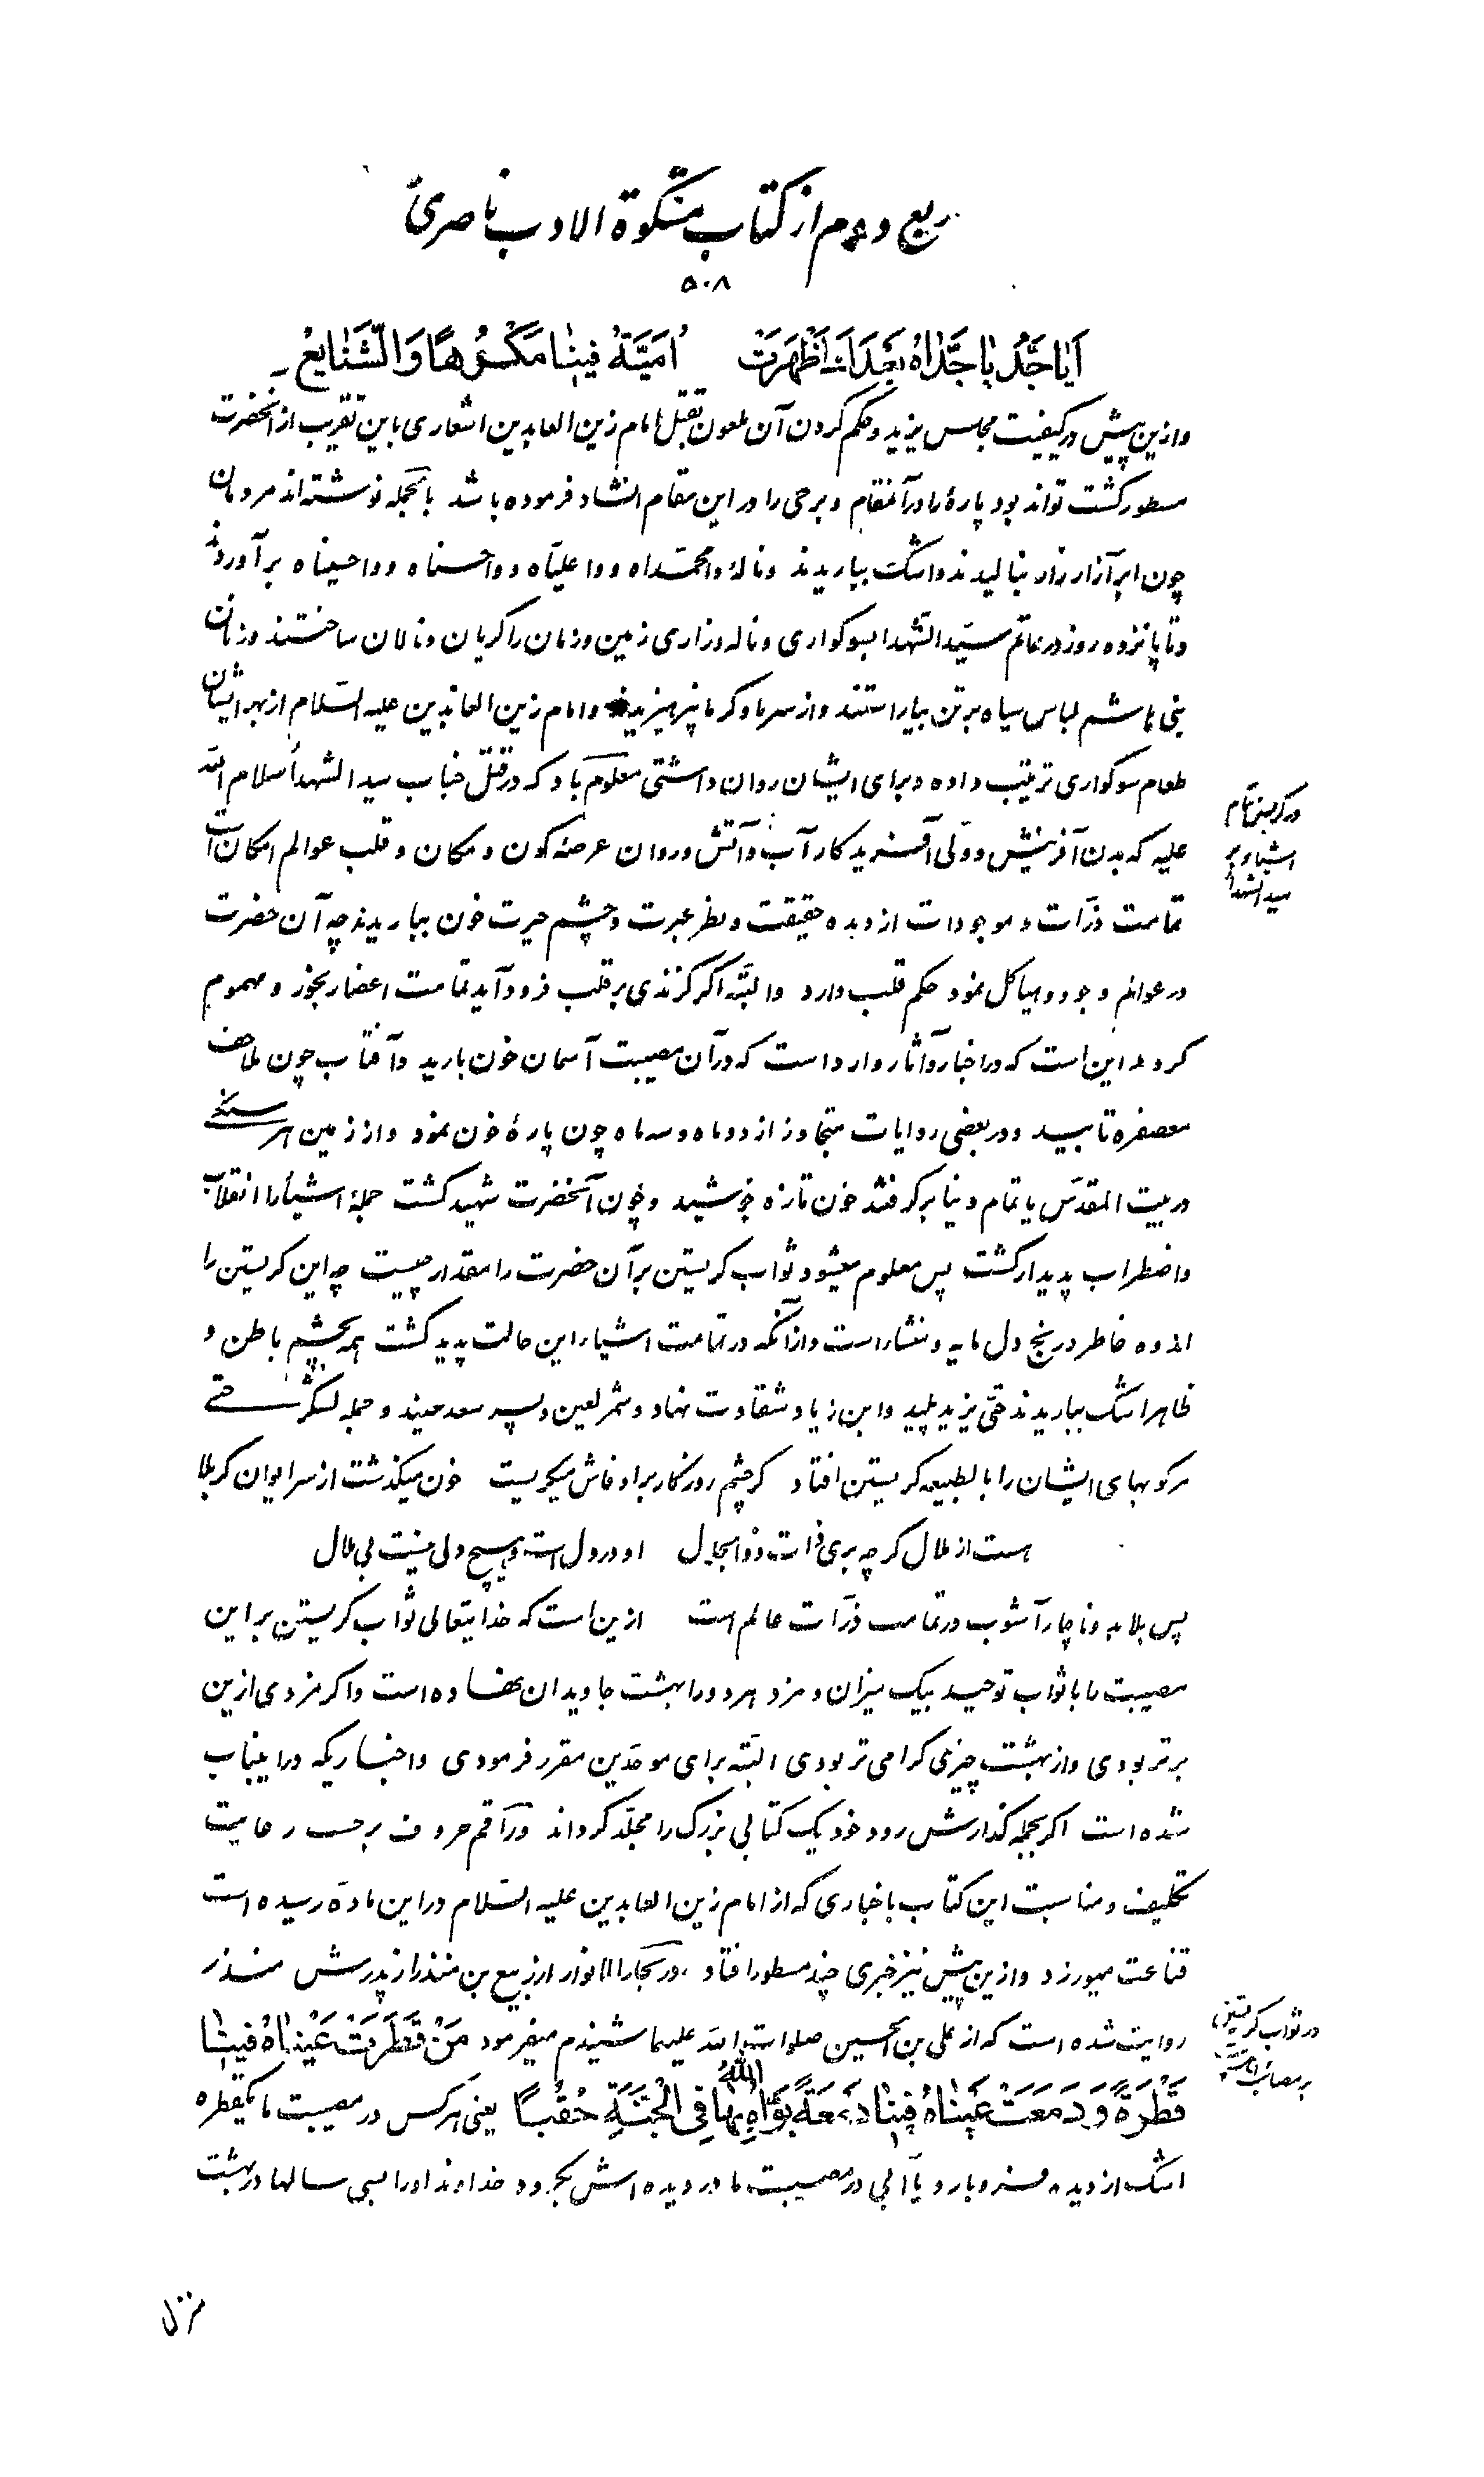 ربع دویم از کتاب مشکوة الادب ناصری
۵۰۸
اَیا جَدُّ یا جَدّاهُ بَعْدَكَ اَظْهَرَتْ اُمَیَّةُ فینا مَکْرُهًا وَالشَّنایِعُ
وازین پیش در کیفیت مجلس یزید و حکم کردن آن ملعون بقتل امام زین العابدین اشعاری باین تقریب از آنحضرت
مسطور کشت تواند بود پارهٔ را در آنمقام و برخی را در این مقام انشاد فرموده باشد بالجمله نوشته‌اند مردمان
چون ابر آزار زار بنالیدند و اشک بباریدند و نالهٔ وامحمّداه و واعلیّاه و واحسناه و واحسیناه برآوردند
و تا پانزده روز در ماتم سیّد الشهدا بسوکواری و ناله و زاری زمین و زمان را کریان و نالان ساختند و زنان
بنی هاشم لباس سیاه بر تن بیاراستند و از سرما و کرما نپرهیزیدند و امام زین العابدین علیه السّلام از بهر ایشان
طعام سوکواری ترتیب داده و برای ایشان روان داشتی معلوم باد که در قتل جناب سید الشهدا سلام الله
علیه که بدن آفرینش و ولی آفریدکار آب و آتش و روان عرصهٔ کون و مکان و قلب عوالم امکان است
تمامت ذرّات و موجودات از دیده حقیقت و نظر عبرت و چشم حیرت خون بباریدند چه آن حضرت
در عوالم وجود و هیاکل نمود حکم قلب دارد والبتّه اکر کزندی بر قلب فرود آید تمامت اعضا رنجور و مهموم
کردند این است که در اخبار و آثار وارد است که در آن مصیبت آسمان خون بارید و آفتاب چون ملاحف
معصفره تابید و در بعضی روایات متجاوز از دو ماه و سه ماه چون پارهٔ خون نمود و از زمین هر سنکی
در بیت المقدّس یا تمام دنیا برکرفتند خون تازه جوشید و چون آنحضرت شهید کشت جملهٔ اشیأ را انقلاب
و اضطراب پدیدار کشت پس معلوم میشود ثواب کریستن بر آن حضرت را مقدار چیست چه این کریستن را
اندوه خاطر و رنج دل مایه و منشاء است و از آنکه در تمامت اشیاء این حالت پدید کشت همه بچشم باطن و
ظاهر اشک بباریدند حتّی یزید پلید و ابن زیاد شقاوت نهاد و شمر لعین و پسر سعد عنید و جمله لشکر حتی
مرکوبهای ایشان را بالطبیعه کریستن افتاد کر چشم روزکار بر او فاش میکریست خون میکذشت از سر ایوان کربلا
هست از ملال کرچه بری ذات ذوالجلال او در دل است و هیچ دلی نیست بی ملال
پس بلابد و ناچار آشوب در تمامت ذرّات عالم است ازین است که خدایتعالی ثواب کریستن بر این
مصیبت را با ثواب توحید بیک میزان و مزد هر دو را بهشت جاویدان نهاده است و اکر مزدی ازین
برتر بودی و از بهشت چیزی کرامی تر بودی البتّه برای موحّدین مقرر فرمودی و اخباریکه در اینباب
شده است اکر بجمله کذارش رود خود یک کتابی بزرک را مجلّد کرداند و راقم حروف بر حسب رعایت
تکلیف و مناسبت این کتاب باخباری که از امام زین العابدین علیه السّلام در این مادّه رسیده است
قناعت میورزد و ازین پیش نیز خبری چند مسطور افتاد در بحار الانوار از ربیع بن منذر از پدرش منذر
روایت شده است که از علی بن الحسین صلوات الله علیهما شنیدم میفرمود مَنْ قَطَرَتْ عَیْناهُ فینا
قَطْرَةً وَ دَمَعَتْ عَیْناهُ فینا دَمْعَةً بَوَّاَهُ اللّٰهُ بِها فِی الْجَنَّةِ حُقُبًا یعنی هر کس در مصیبت ما یکقطره
اشک از دیده فرو بارد یا آبی در مصیبت ما در دیده‌اش بکردد خداوند او را بسی سالها در بهشت
منزل
در کریستن تمام
اشیاء بر
سید الشهدا
در ثواب کریستن
بر مصائب ائمه